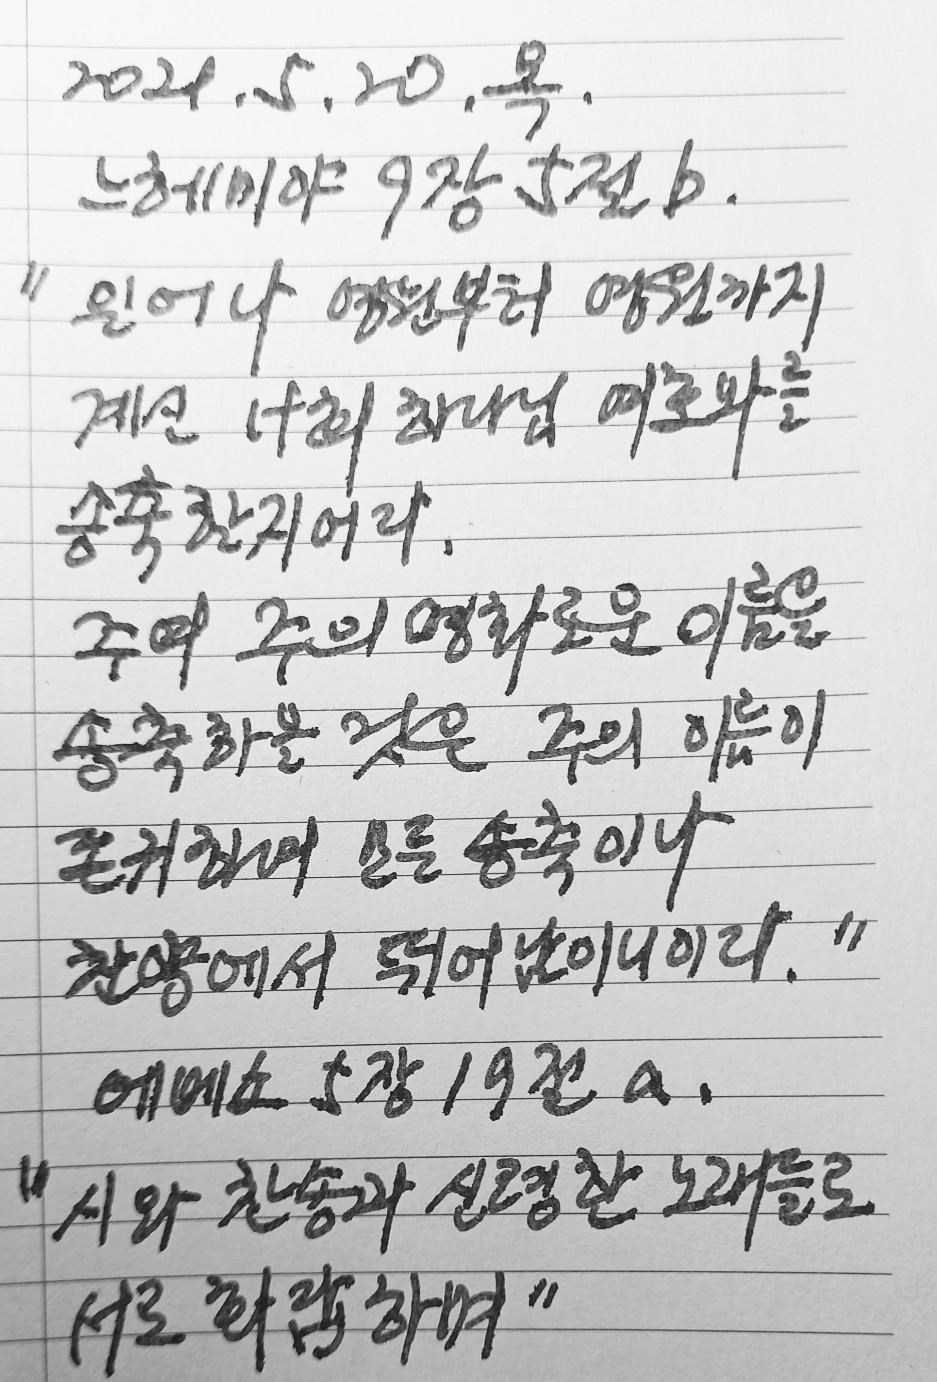 2021.5.20.목.
느헤미야 9장 5절 b.
"일어나 영원부터 영원까지
계신 너희 하나님 여호와를
송축할지어다.
주여 주의 영화로운 이름을
송축하올 것은 주의 이름이
존귀하여 모든 송축이나
찬양에서 뛰어남이니이다."
에베소 5장 19절 a.
"시와 찬송과 신령한 노래들로
서로 화답하며"